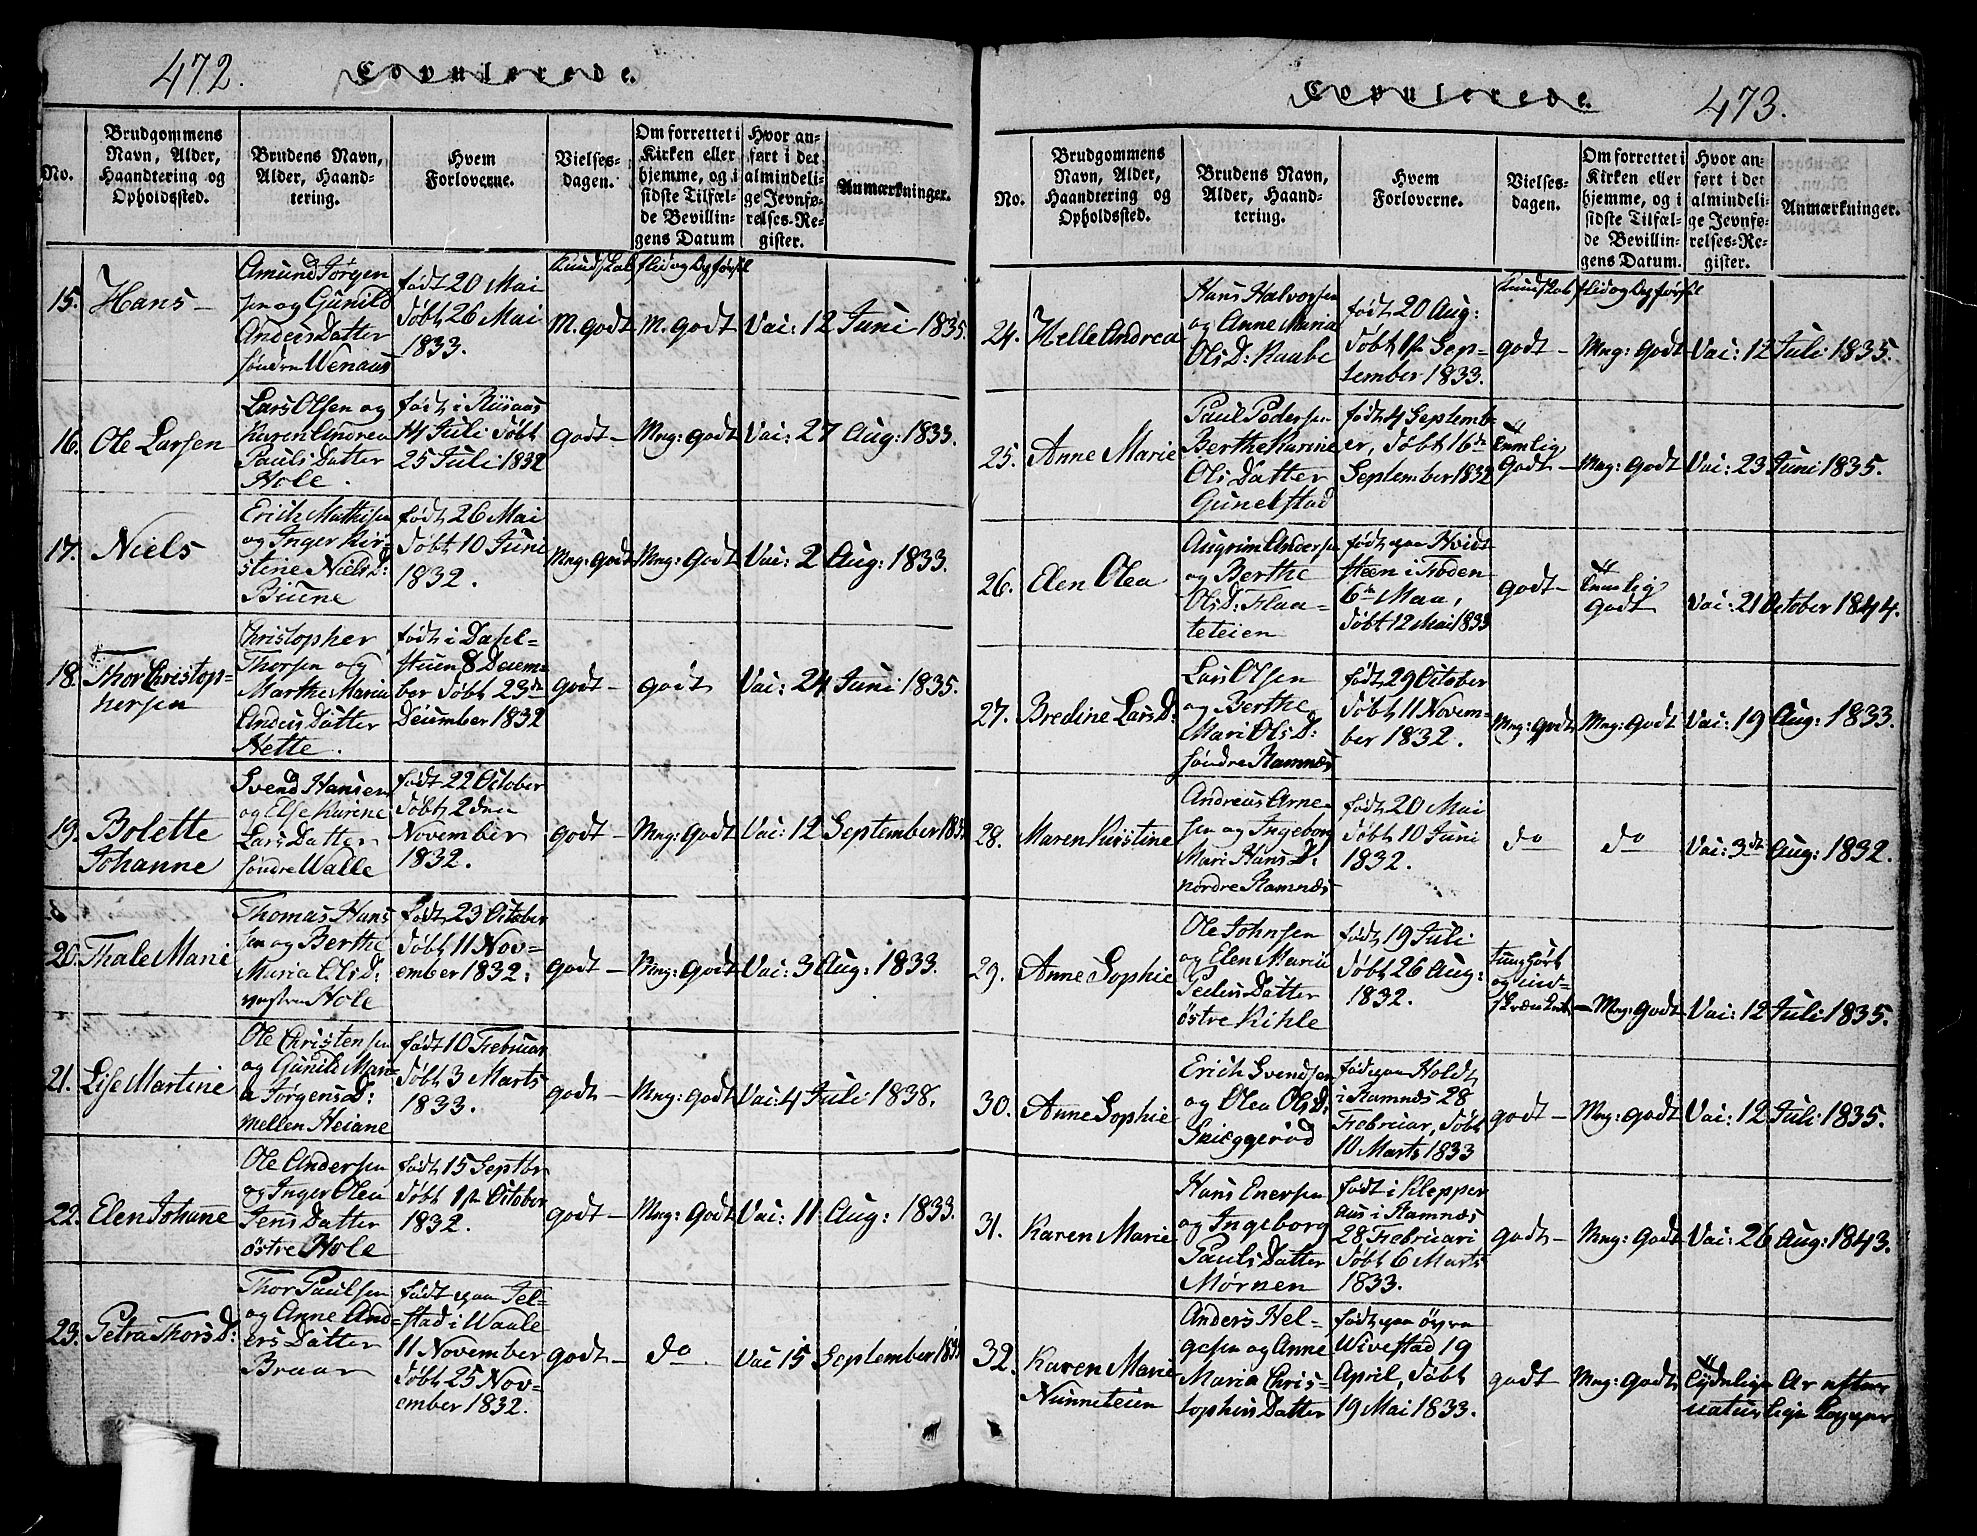 472.
Copulerede.
No.
Brudgommens
Navn, Alder,
Haandtering og
Opholdssted.
Brudens Navn,
Alder, Haand-
tering.
Hvem
Forloverne.
Vielses-
dagen.
Om forrettet i
Kirken eller
hjemme, og i
sidste Tilfæl-
de Bevillin-
gens Datum
Hvor an-
ført i det
almindeli-
ge Jevnfø-
relses-Re-
gister.
Anmærkninger.
Kundskab flid og Opførsel
15. Hans -
Amund Jörgen
sen og Gunild
Anders Datter
söndre Wenaas
födt 20 Mai
döbt 26 Mai
1833.
M. godt M. godt Vac: 12 Juni 1835.
16. Ole Larsen
Lars Olsen og
Karen Andrea
Pauls Datter
Hole.
födt i
14 Juli döbt
25 Juli 1832
godt - Mng: godt Vac: 27 Aug: 1833.
17. Niels
Erich Mathisen
og Inger Kir-
stine Niels D:
födt 26 Mai
döbt 10 Juni
1832.
Mng: godt Mng: godt Vac: 2 Aug: 1833.
18. Thor Christop-
hersen
Christopher
Thorsen og
Marthe Maria
Anders Datter
Nette.
födt i Dasel-
stuen 8 Decem-
ber döbt 23de
December 1832
godt - godt Vac: 24 Juni 1835.
19. Bolette
Johanne
Svend Hansen
og Else Karine
Lars Datter
söndre Walle
födt 22 October
döbt 2den
November
1832.
godt - Mng: godt Vac: 12 September
20. Thale Marie
Thomas Hans
sen og Berthe
Maria Ols D:
vestre Hole
födt 23 October
döbt 11 Nov-
ember 1832.
godt - Mng: godt Vac: 3 Aug: 1833.
21. Lise Martine
Ole Christensen
og Gunild Mari-
a Jörgens D:
mellen Heiane
födt 10 Februar
döbt 3 Marts
1833.
godt - Mng: godt Vac: 4 Juli 1838.
22. Elen Johane
Ole Andersen
og Inger Olea
Jens Datter
östre Hole
födt 15 Septbr
döbt 1ste October
1832.
godt - Mng: godt Vac: 11 Aug: 1833.
23. Petra Thors D:
Thor Paulsen
og Anne And-
ers Datter
Braar
födt paa Jel-
stad i Waale
11 November
döbt 25 Nov-
ember 1832.
godt - do. Vac 15 September
473.
Copulerede.
No.
Brudgommens
Navn, Alder,
Haandtering og
Opholdssted.
Brudens Navn,
Alder, Haand-
tering.
Hvem
Forloverne.
Vielses-
dagen.
Om forrettet i
Kirken eller
hjemme, og i
sidste Tilfæl-
de Bevillin-
gens Datum.
Hvor an-
ført i det
almindeli-
ge Jevnfø-
relses-Re-
gister.
Anmærkninger.
Kundskab flid og Opførsel
24. Helle Andrea
Hans Halvorsen
og Anne Maria
Ols D: Raabe
födt 20 Aug:
döbt 1ste Sep-
tember 1833.
godt - Mng: godt Vac: 12 Juli 1835.
25. Anne Marie
Paul Pedersen
Berthe Karine
Ols Datter
Gunelstad
födt 4 Septemb-
er, döbt 16de
September 1832
temmelig
godt - Mng: godt Vac: 23 Juni 1835.
26. Elen Olea
Augrim Andersen
og Berthe
Ols D: Flaa-
teteien
födt paa Hvidt
steen i
6te Maa,
döbt 12 Mai 1833
godt - temmelig
godt Vac: 21 October 1844.
27. Bredine Lars D:
Lars Olsen
og Berthe
Mari Ols D:
söndre Ramnæs
födt 29 October
döbt 11 Novem-
ber 1832.
Mng: godt Mng: godt Vac: 19 Aug: 1833.
28. Maren Kirstine
Andreas Arne-
sen og Ingeborg
Mari Hans D:
nordre Ramnæs
födt 20 Mai
döbt 10 Juni
1832.
do do Vac: 3de Aug: 1832.
29. Anne Sophie
Ole Johnsen
og Elen Maria
Peders Datter
östre Kihle
födt 19 Juli
döbt 26 Aug:
1832.
tunghört
og ind-
skrænket - Mng: godt Vac: 12 Juli 1835.
30. Anne Sophie
Erich Svendsen
og Olea Ols D:
Skieggeröd
föd paa Holdt
i Ramnæs 28
Februar, döbt
10 Marts 1833
godt - Mng: godt Vac: 12 Juli 1835.
31. Karen Marie
Hans Enersen
og Ingeborg
Pauls Datter
Mörnen
födt i Klepper
aas i Ramnæs
28 Februari
döbt 6 Marts
1833.
godt - Mng: godt Vac: 26 Aug: 1843.
32. Karen Marie
Nunneteien
Anders Hel-
gesen og Anne
Maria Chris-
tophers Datter
födt paa övre
Wivestad 19
April, döbt
19 Mai 1833.
godt Mng: godt tydelige Ar efter
naturlige Kopper